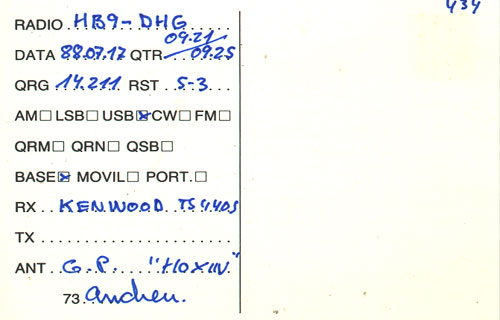 434
RADIO HB9-DHG
09.21
DATA 88.07.17 QTR 09.25
QRG 14.211 RST 5-3
AM☐ LSB☐ USB☒ CW☐ FM☐
QRM☐ QRN☐ QSB☐
BASE☒ MOVIL☐ PORT.☐
RX KENWOOD TS 440S
TX
ANT G.P. "HOXIN"
73